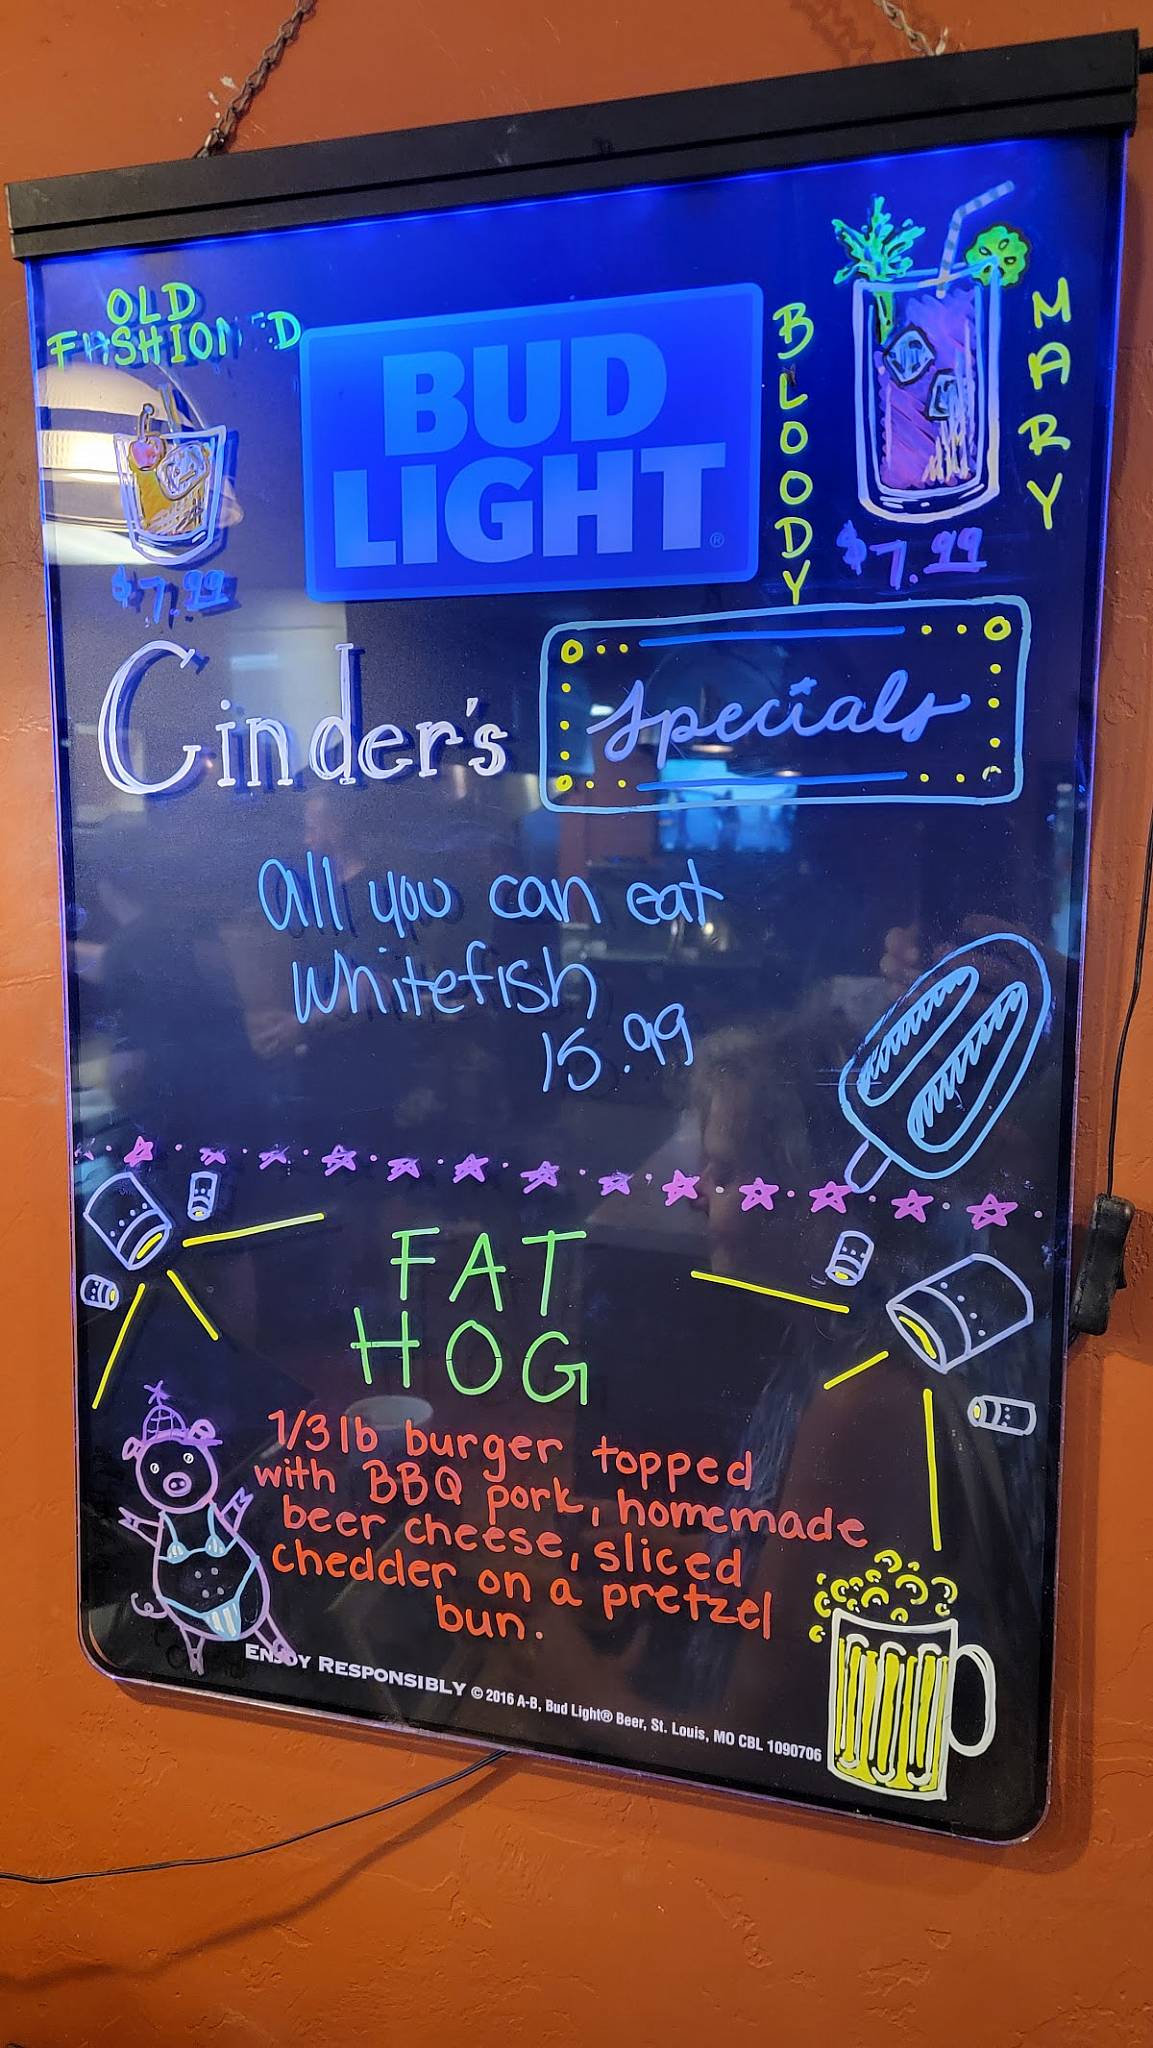 OLD
FASHIONED
$7.99
BUD
LIGHT®
BLOODY
MARY
$7.99
Cinder's
Specials
all you can eat
whitefish
15.99
FAT
HOG
1/3 lb burger topped
with BBQ pork, homemade
beer cheese, sliced
chedder on a pretzel
bun.
ENJOY RESPONSIBLY © 2016 A-B, Bud Light® Beer, St. Louis, MO CBL 1090706